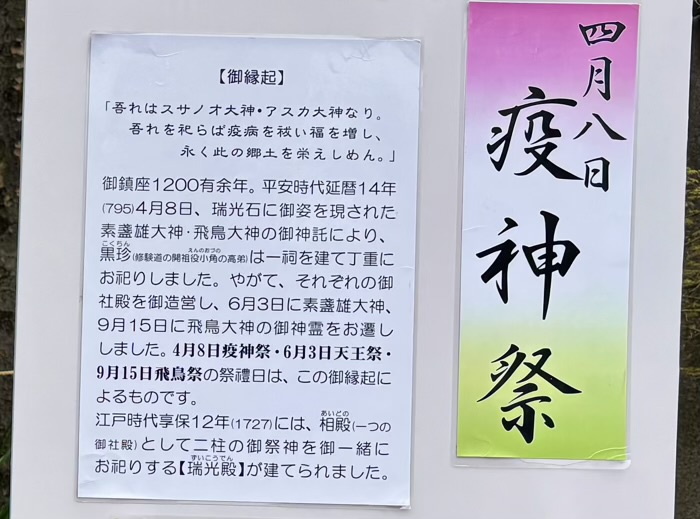 【御縁起】
「吾れはスサノオ大神・アスカ大神なり。
吾れを祀らば疫病を祓い福を増し、
永く此の郷土を栄えしめん。」
御鎮座1200有余年。平安時代延暦14年
(795)4月8日、瑞光石に御姿を現された
素盞雄大神・飛鳥大神の御神託により、
こくちん えんのおづの
黒珍(修験道の開祖役小角の高弟)は一祠を建て丁重に
お祀りしました。やがて、それぞれの御
社殿を御造営し、6月3日に素盞雄大神、
9月15日に飛鳥大神の御神霊をお遷し
しました。4月8日疫神祭・6月3日天王祭・
9月15日飛鳥祭の祭禮日は、この御縁起に
よるものです。
あいどの
江戸時代享保12年(1727)には、相殿(一つの
御社殿)として二柱の御祭神を御一緒に
ずいこうでん
お祀りする【瑞光殿】が建てられました。
四月八日
疫神祭